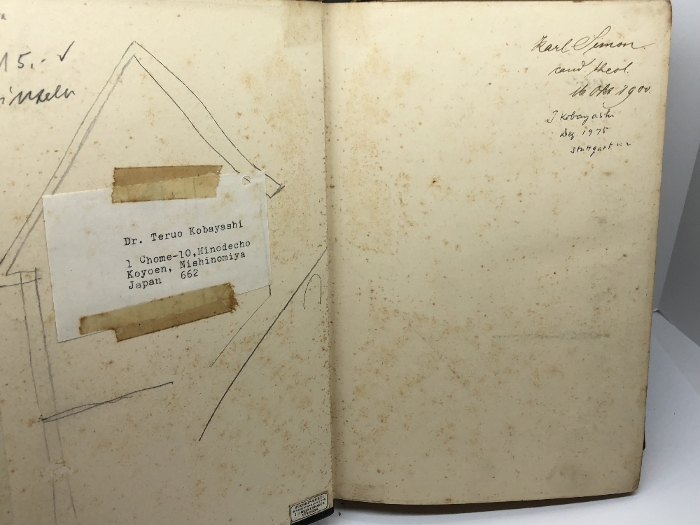 15.- ✓
inzeln
Dr. Teruo Kobayashi
1 Chome-10,Hinodecho
Koyoen, Nishinomiya
Japan 662
Karl Simon
kand. theol.
16 Okt. 1900.
T Kobayashi
Dez 1975
Stuttgart